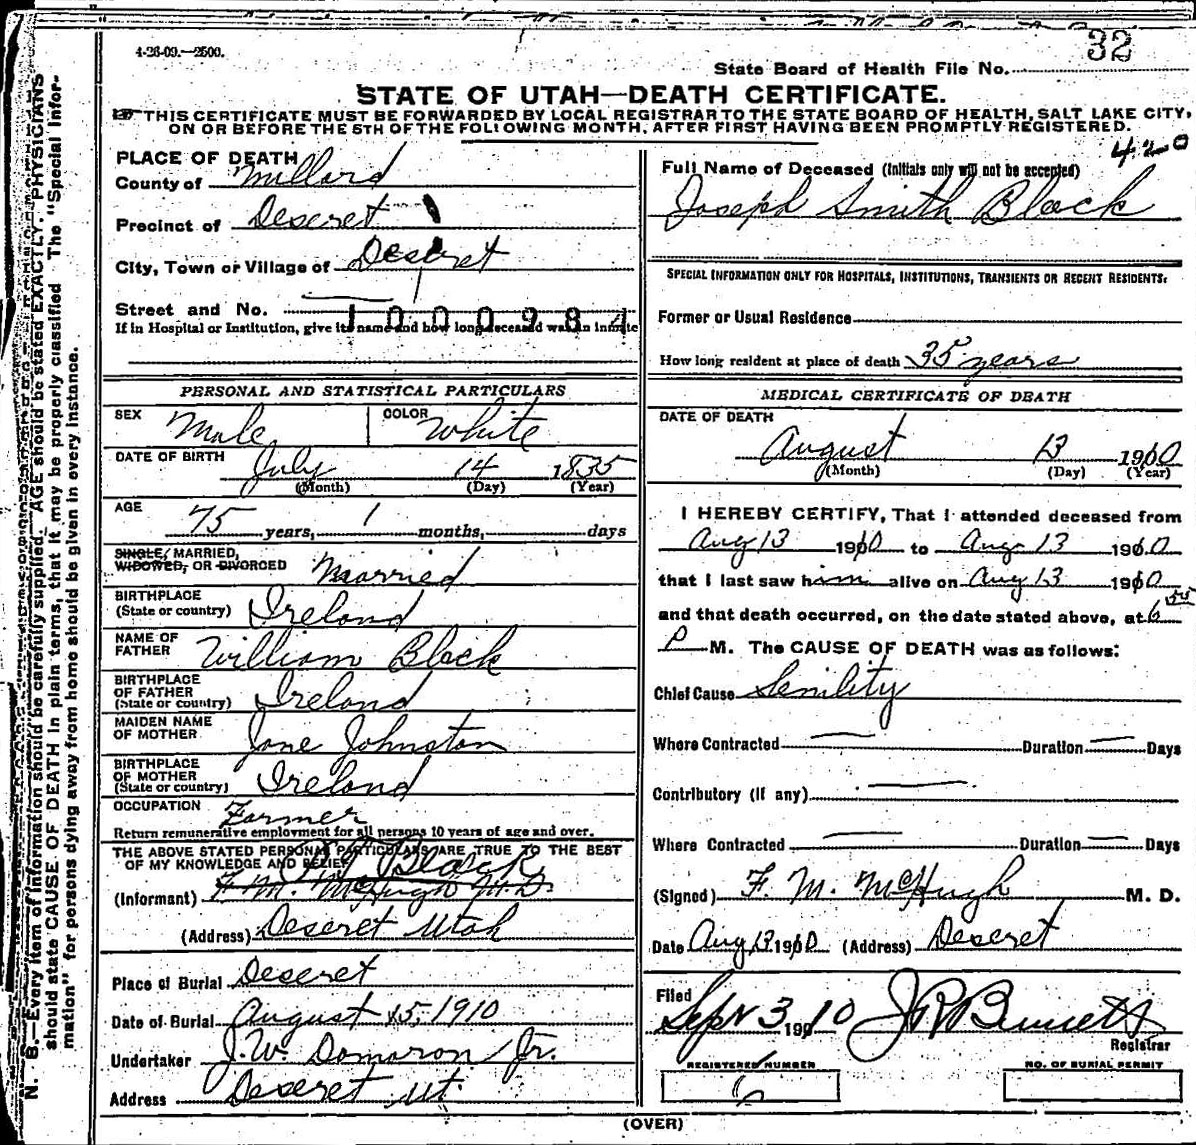 4-26-09.—2500.
32
State Board of Health File No.
STATE OF UTAH—DEATH CERTIFICATE.
THIS CERTIFICATE MUST BE FORWARDED BY LOCAL REGISTRAR TO THE STATE BOARD OF HEALTH, SALT LAKE CITY,
ON OR BEFORE THE 5TH OF THE FOLLOWING MONTH, AFTER FIRST HAVING BEEN PROMPTLY REGISTERED.
420
PLACE OF DEATH
County of Millard
Precinct of Deseret
City, Town or Village of Deseret
Street and No.
1000984
If in Hospital or Institution, give its name and how long deceased was an inmate
PERSONAL AND STATISTICAL PARTICULARS
SEX Male COLOR White
DATE OF BIRTH July 14 1835
(Month) (Day) (Year)
AGE 75 years, 1 months, days
SINGLE, MARRIED,
WIDOWED, OR DIVORCED Married
BIRTHPLACE
(State or country) Ireland
NAME OF
FATHER William Black
BIRTHPLACE
OF FATHER
(State or country) Ireland
MAIDEN NAME
OF MOTHER Jane Johnston
BIRTHPLACE
OF MOTHER
(State or country) Ireland
OCCUPATION Farmer
Return remunerative employment for all persons 10 years of age and over.
THE ABOVE STATED PERSONAL PARTICULARS ARE TRUE TO THE BEST
OF MY KNOWLEDGE AND BELIEF
Black
(Informant) F. M. McHugh M.D.
(Address) Deseret Utah
Place of Burial Deseret
Date of Burial August 15, 1910
Undertaker J. W. Damaron Jr.
Address Deseret Ut.
Full Name of Deceased (Initials only will not be accepted)
Joseph Smith Black
SPECIAL INFORMATION ONLY FOR HOSPITALS, INSTITUTIONS, TRANSIENTS OR RECENT RESIDENTS.
Former or Usual Residence
How long resident at place of death 35 years
MEDICAL CERTIFICATE OF DEATH
DATE OF DEATH
August 13 1910
(Month) (Day) (Year)
I HEREBY CERTIFY, That I attended deceased from
Aug 13 1910 to Aug 13 1910
that I last saw him alive on Aug 13 1910
and that death occurred, on the date stated above, at 6 55
P M. The CAUSE OF DEATH was as follows:
Chief Cause Senility
Where Contracted Duration Days
Contributory (if any)
Where Contracted Duration Days
(Signed) F. M. McHugh M. D.
Date Aug 13 1910 (Address) Deseret
Filed
Sept 3 1910 J R Bennett
Registrar
REGISTERED NUMBER
6
NO. OF BURIAL PERMIT
(OVER)
N. B.—Every item of information should be carefully supplied. AGE should be stated EXACTLY. PHYSICIANS
should state CAUSE OF DEATH in plain terms, that it may be properly classified. The "Special Infor-
mation" for persons dying away from home should be given in every instance.